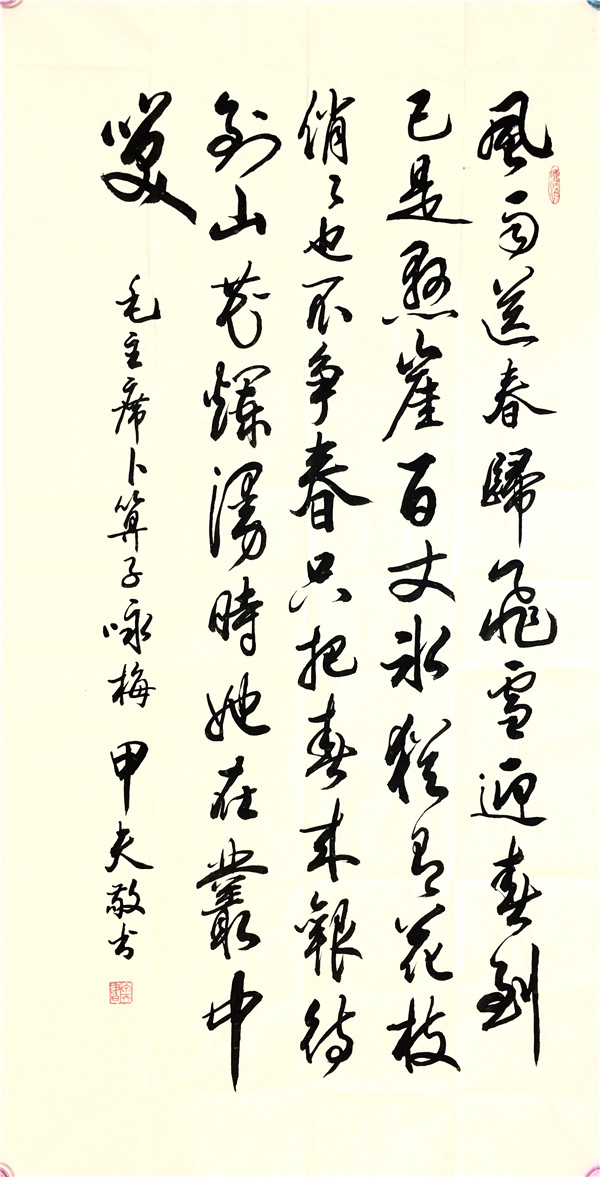 風雨送春歸飛雪迎春到
已是懸崖百丈冰猶有花枝
俏〻也不争春只把春来報待
到山花爛漫時她在叢中
咲
毛主席卜算子咏梅 甲夫敬书